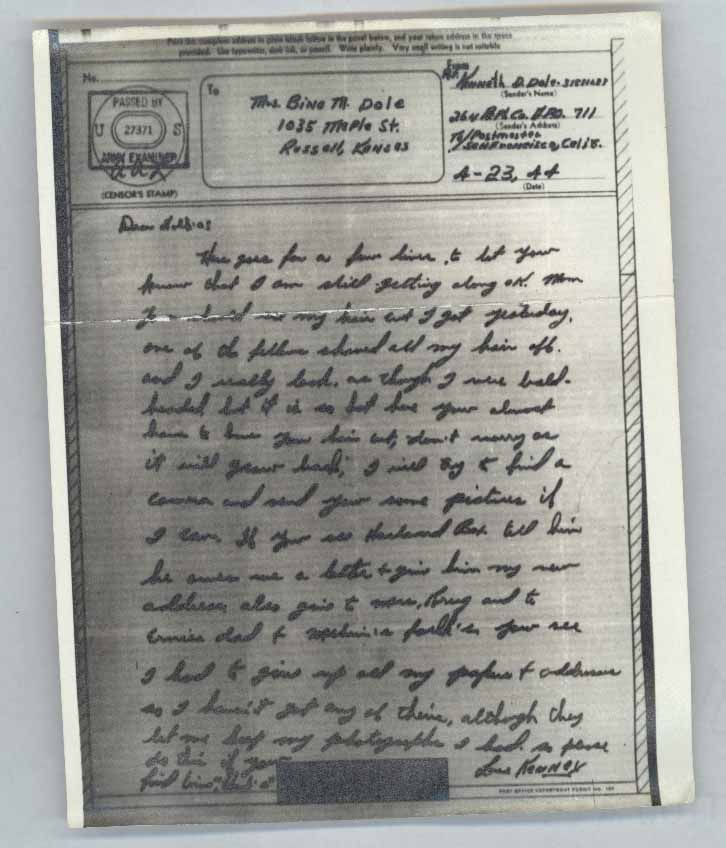 Print the complete address in plain block letters in the panel below, and your return address in the space
provided. Use typewriter, dark ink, or pencil. Write plainly. Very small writing is not suitable
No.
PASSED BY
U S
27371
ARMY EXAMINER
(CENSOR'S STAMP)
To
Mrs. Bina M. Dale
1035 Maple St.
Russell, Kansas
From
Kenneth D. Dale
(Sender's Name)
264 Co. A.P.O. 711
(Sender's Address)
℅ Postmaster
San Francisco, Calif.
4-23, 44
(Date)
Dear
Here goes for a few lines, to let your
know that I am still getting along ok. Mom
you should see my hair cut I got yesterday,
one of the fellows shaved all my hair off.
and I really look as though I were bald-
headed, but it is so hot here your almost
have to have your hair cut, don't worry as
it will grow back, I will try to find a
camera and send your some pictures if
I can. If your see tell him
he owes me a letter & give him my new
address, also give to and to
dad & folk's your see
I had to give up all my papers & addresses
so I haven't got any of theirs, although they
let me keep my photographs I had. so please
do this if your
find time,
Love Kenney
POST OFFICE DEPARTMENT PERMIT NO.